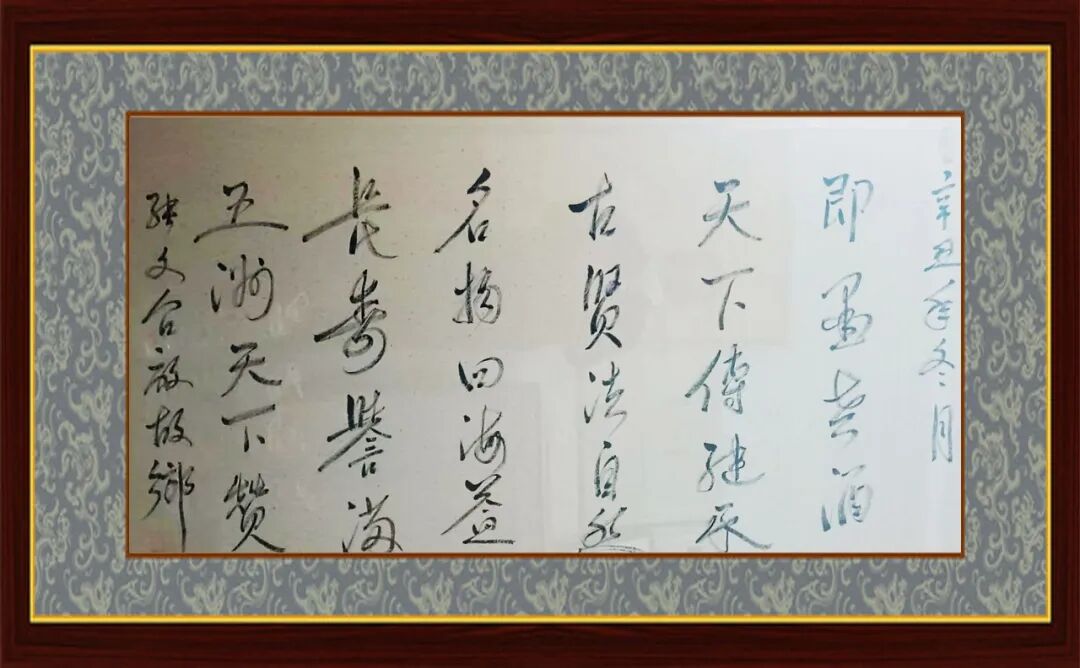 辛丑年冬月
即墨老酒
天下傳継承
古贤法自然
名揚四海益
長寿譽满
五洲天下赞
张文合 故鄉